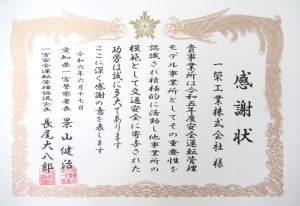 感謝状
一榮工業株式会社 様
貴事業所は令和五年度安全運転管理
モデル事業所としてその重要性を
認識され積極的に活動し他事業所の
模範として交通安全に寄与された
功労は誠に多大であります
ここに深く感謝の意を表します
令和六年六月十七日
愛知県一宮警察署長 景山健治
一宮安全運転管理協議会長 長尾大八郎